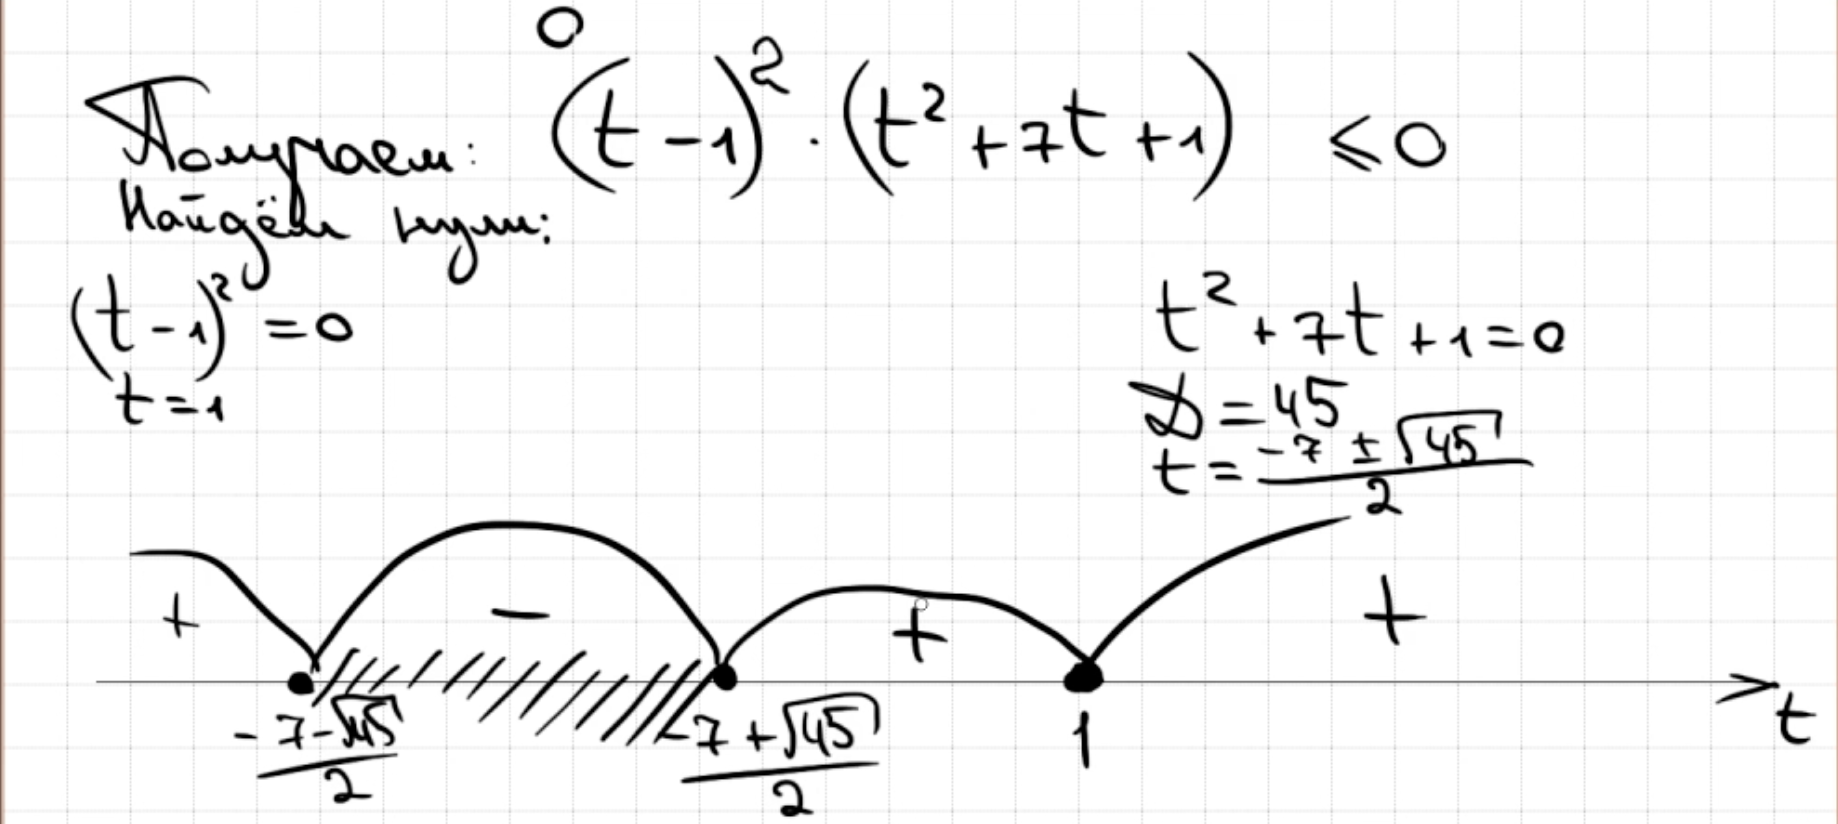 0
Получаем: (t-1)² · (t² + 7t + 1) ≤ 0
Найдём нули:
(t-1)² = 0
t = 1
t² + 7t + 1 = 0
D = 45
t = (-7 ± √45)/2
+ − + +
(-7-√45)/2 (-7+√45)/2 1 t